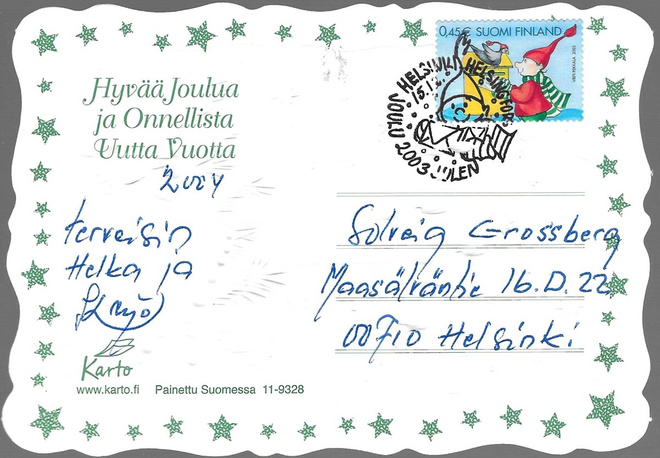 0,45€ SUOMI FINLAND
HELSINKI HELSINGFORS
15.12.
JOULU 2003 JULEN
Hyvää Joulua
ja Onnellista
Uutta Vuotta
2004
terveisin
Helka ja
Solveig Grossberg
Maasälväntie 16.D.22
00710 Helsinki
Karto
www.karto.fi Painettu Suomessa 11-9328